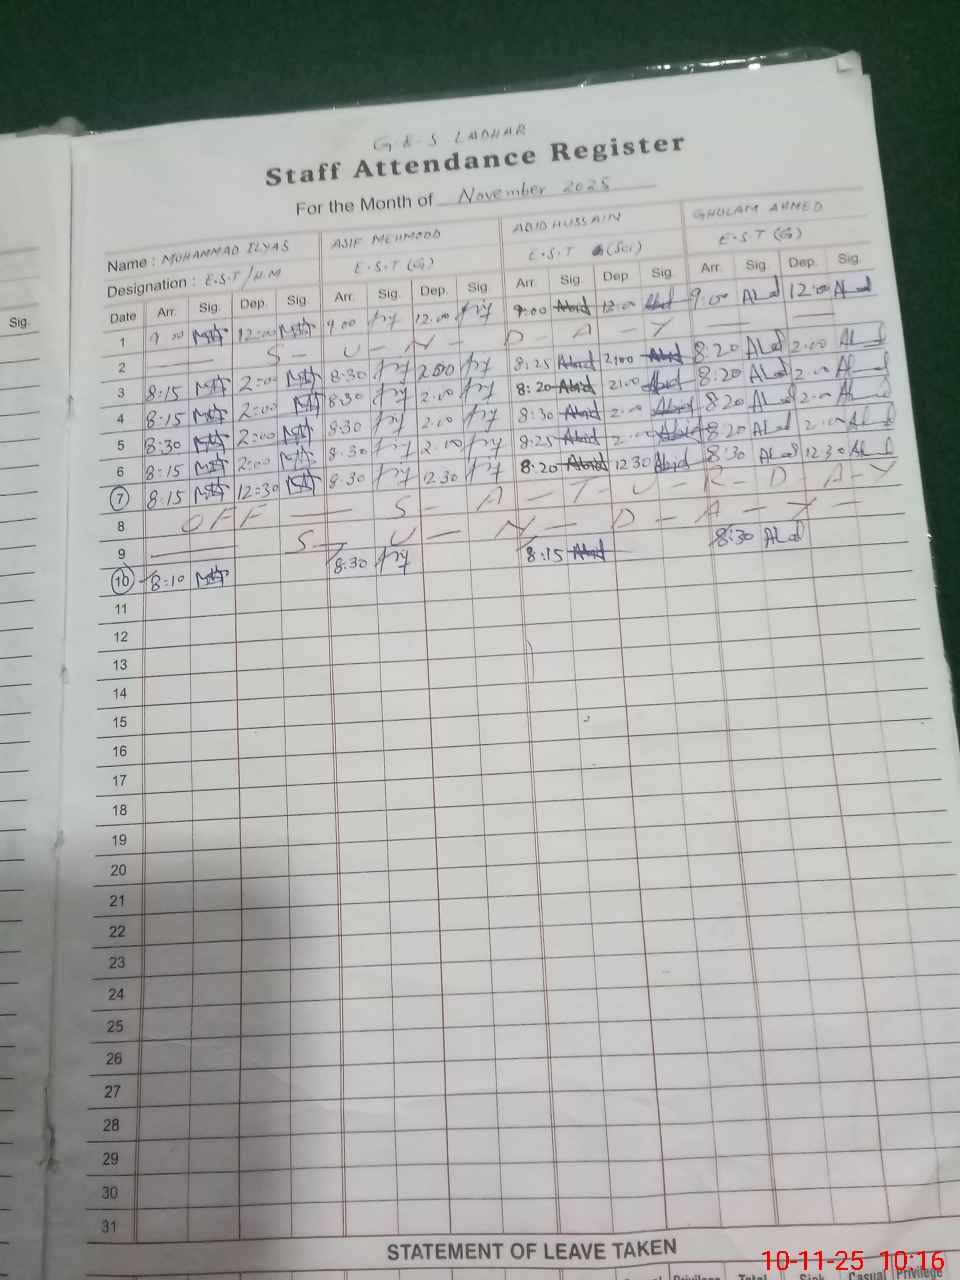 G & S LADHAR
Staff Attendance Register
For the Month of November 2025
Name : MUHAMMAD ILYAS ASIF MEHMOOD ABID HUSSAIN GHULAM AHMED
Designation : E.S.T/H.M E.S.T (G) E.S.T (Sci) E.S.T (G)
Sig.
Date Arr. Sig. Dep. Sig. Arr. Sig. Dep. Sig. Arr. Sig. Dep. Sig. Arr. Sig. Dep. Sig.
1 9:00 12:00 9:00 12:00 9:00 Abid 12:00 Abid 9:00 12:00
2 S - U - N - D - A - Y
3 8:15 2:00 8:30 2:00 8:25 Abid 2:00 Abid 8:20 2:00
4 8:15 2:00 8:30 2:00 8:20 Abid 2:00 Abid 8:20 2:00
5 8:30 2:00 8:30 2:00 8:30 Abid 2:00 Abid 8:20 2:00
6 8:15 2:00 8:30 2:00 8:25 Abid 2:00 Abid 8:20 2:00
7 8:15 12:30 8:30 12:30 8:20 Abid 12:30 Abid 8:30 12:30
8 OFF S - A - T - U - R - D - A - Y
9 S - U - N - D - A - Y -
10 8:10 8:30 8:15 Abid 8:30
11
12
13
14
15
16
17
18
19
20
21
22
23
24
25
26
27
28
29
30
31
STATEMENT OF LEAVE TAKEN
Privilege Total Sick Casual Privilege
10-11-25 10:16